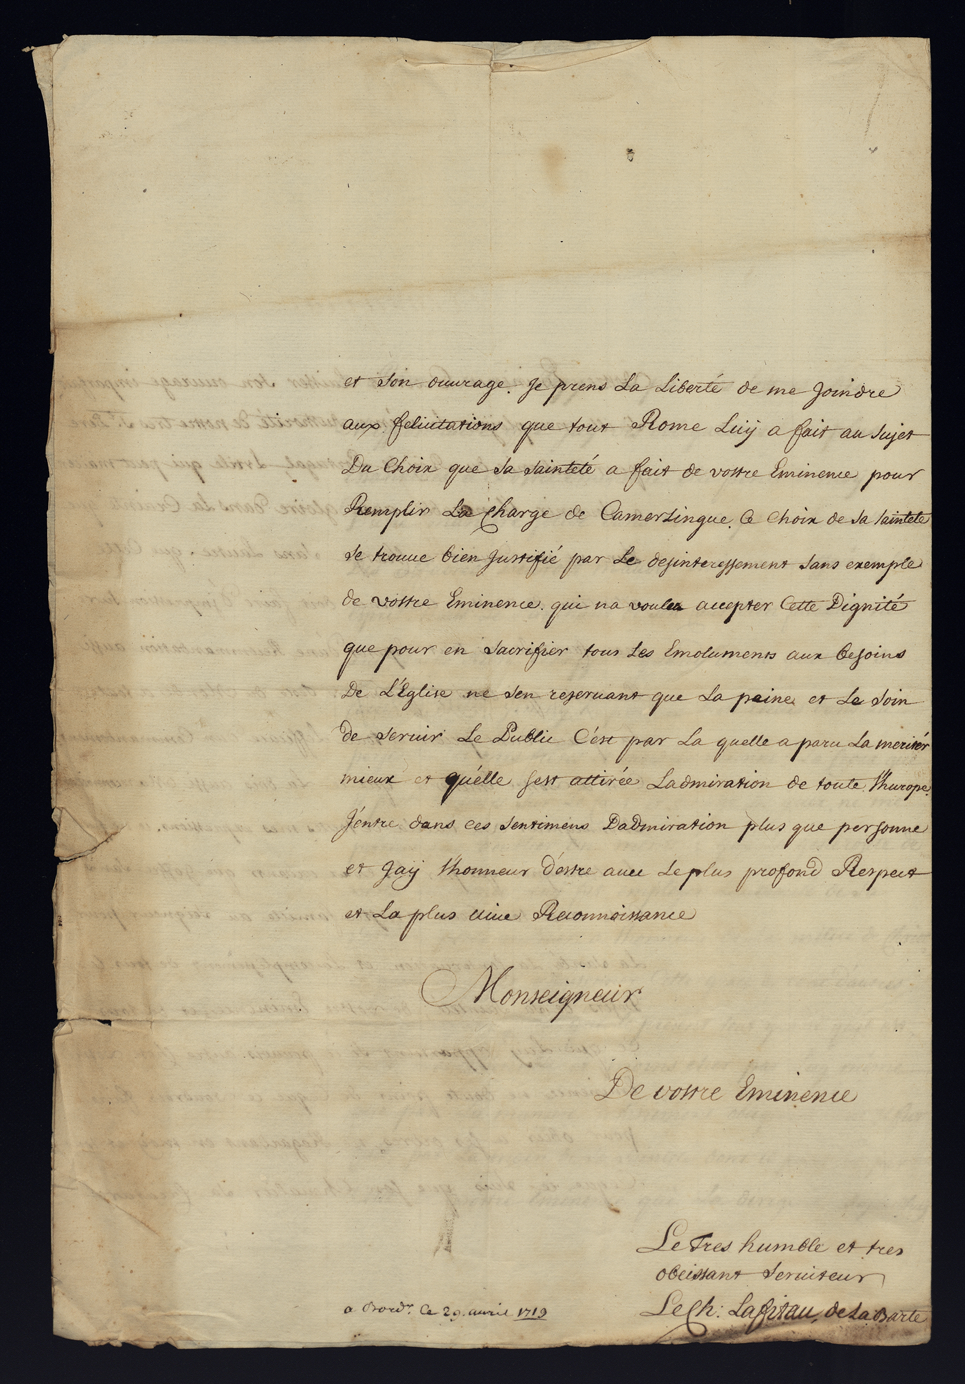 et son ouurage. Je prens La Liberté de me Joindre
aux felicitations que tout Rome Luÿ a fait au sujet
Du Choix que sa sainteté a fait de vostre Eminence pour
Remplir La Charge de Camerlingue. Ce Choix de sa sainteté
se trouue bien Justifié par Le desinteressement sans exemple
de vostre Eminence. qui na voulu accepter Cette Dignité
que pour en sacrifier tous Les Emoluments aux besoins
De L'Eglise ne sen reseruant que La peine et Le soin
de seruir Le Public C'est par La quelle a paru La meriter
mieux et quélle sest attirée Ladmiration de toute l'hurope.
J'entre dans ces sentimens Dadmiration plus que personne
et Jaÿ l'honneur d'estre auec Le plus profond Respect
et La plus uiue Reconnoissance
Monseigneur
De vostre Eminence
Le tres humble et tres
obeissant seruiteur
Le Ch: Laffitau, de La Barte
a Bord.x Ce 29. auril 1719